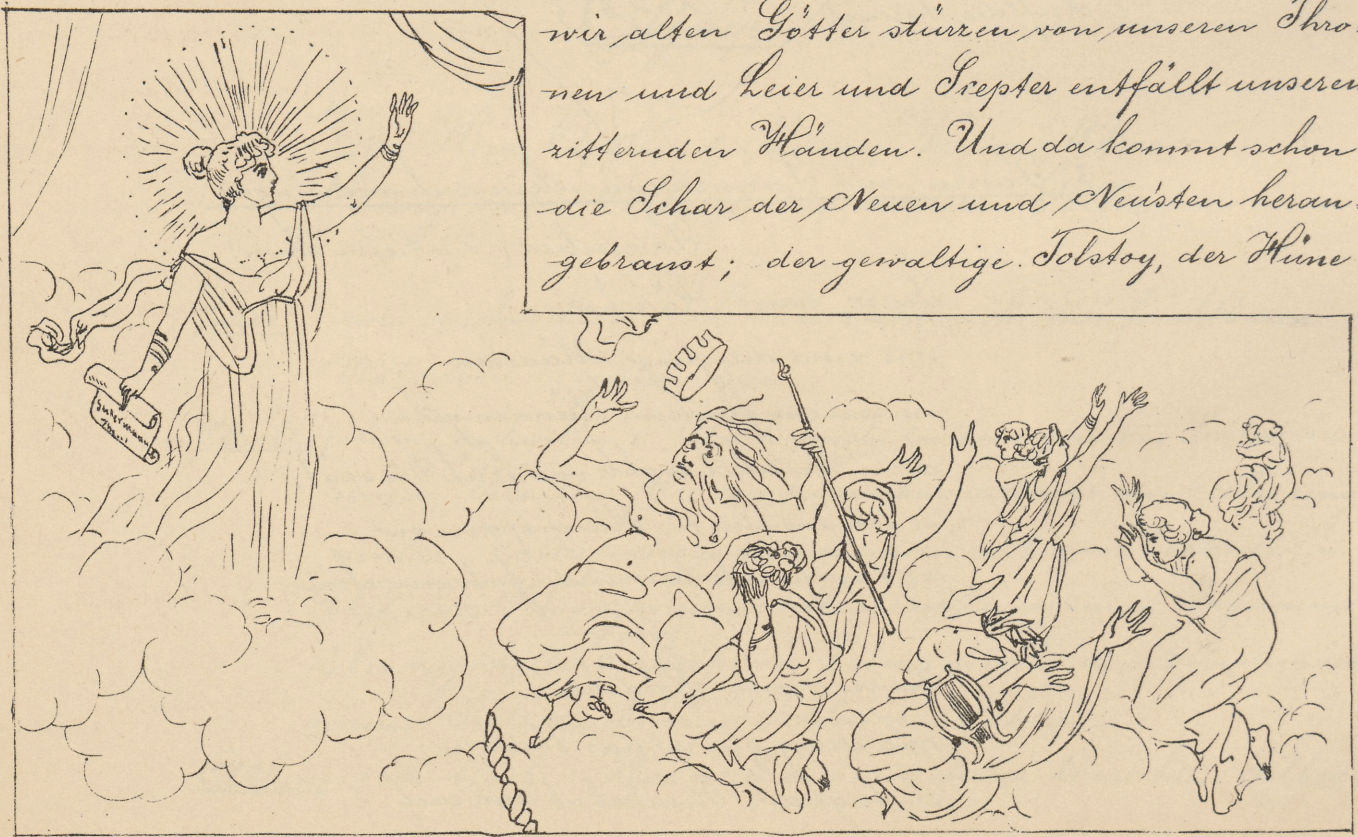 wir alten Götter stürzen von unseren Thro-
nen und Leier und Scepter entfällt unseren
zitternden Händen. Und da kommt schon
die Schar der Neuen und Neu'sten heran-
gebraust; der gewaltige Tolstoy, der Hüne
Sudermann